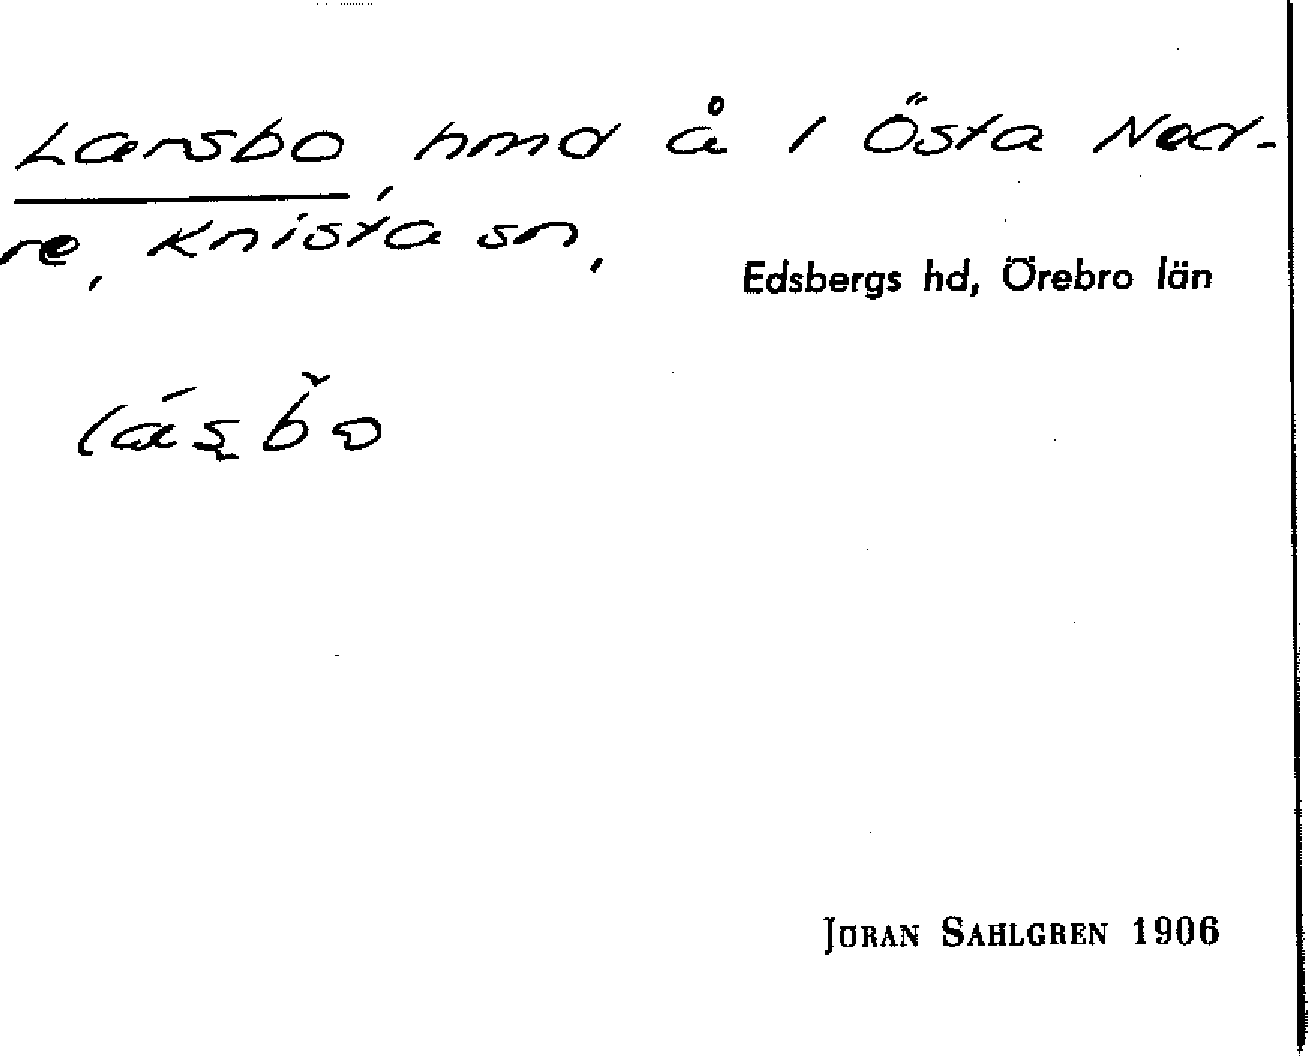 Larsbo, hmd å 1 Östa Ned-
re, Knista sn,
Edsbergs hd, Örebro län
JÖRAN SAHLGREN 1906